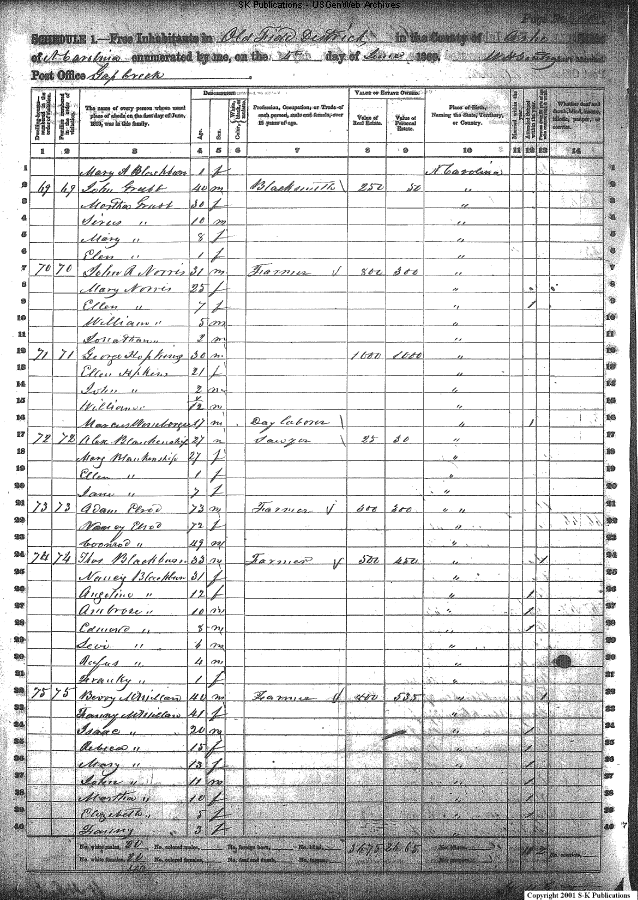 S-K Publications - USGenWeb Archives
SCHEDULE 1.—Free Inhabitants in Old Fields District in the County of Ashe
of N Carolina enumerated by me, on the day of June 1860.
Post Office Gap creek
Dwelling-house— numbered in the order of visitation.
Families numbered in the order of visitation.
The name of every person whose usual place of abode on the first day of June, 1860, was in this family.
Description.
Age.
Sex.
Color,
Profession, Occupation, or Trade of each person, male and female, over 15 years of age.
Value of Estate Owned.
Value of Real Estate.
Value of Personal Estate.
Place of Birth, Naming the State, Territory, or Country.
Married within the year.
1 2 3 4 5 6 7 8 9 10 11 12 13 14
1 Mary A Blackburn 1 f N Carolina
2 69 69 John Grubb 40 m Blacksmith 250 50 "
3 Martha Grubb 30 f "
4 " 10 m "
5 Mary " 8 f "
6 Elen " 1 f "
7 70 70 John R Norris 31 m Farmer 800 300 "
8 Mary Norris 25 f "
9 Ellen " 7 f " 1
10 William " 5 m "
11 Jonathan " 2 m "
12 71 71 George Hopkins 30 m 1000 1000 "
13 Ellen Hopkins 21 f "
14 John " 2 m "
15 William " /12 m "
16 Marcus 17 m Day laborer " 1
17 72 72 Alex Blankenship 27 m Sawyer 25 30 "
18 Mary Blankenship 27 f "
19 Ellen " 1 f "
20 Jane " 7 f "
21 73 73 Adam Elrod 73 m Farmer 300 200 " "
22 Nancy Elrod 72 f "
23 Conrod " 49 m "
24 74 74 Thos Blackburn 33 m Farmer 500 450 " 1
25 Nancy Blackburn 31 f "
26 Angeline " 12 f " 1
27 Ambrose " 10 m " 1
28 Edmond " 8 m " 1
29 Levi " 6 m "
30 Rufus " 4 m "
31 Franky " 1 f "
32 75 75 Berry McMillan 40 m Farmer 400 535 " 1
33 Fanny McMillan 41 f "
34 Isaac " 20 m " 1
35 Rebeca " 15 f " 1
36 Mary " 13 f " 1
37 John " 11 m " 1
38 Martha " 10 f " 1
39 Elizabeth " 5 f "
40 Fanny 3 f "
No. white males, 20 No. colored males, No. foreign born, No. blind, 3675 2665
No. white females, 20 No. colored females, No. deaf and dumb,
Copyright 2001 S-K Publications